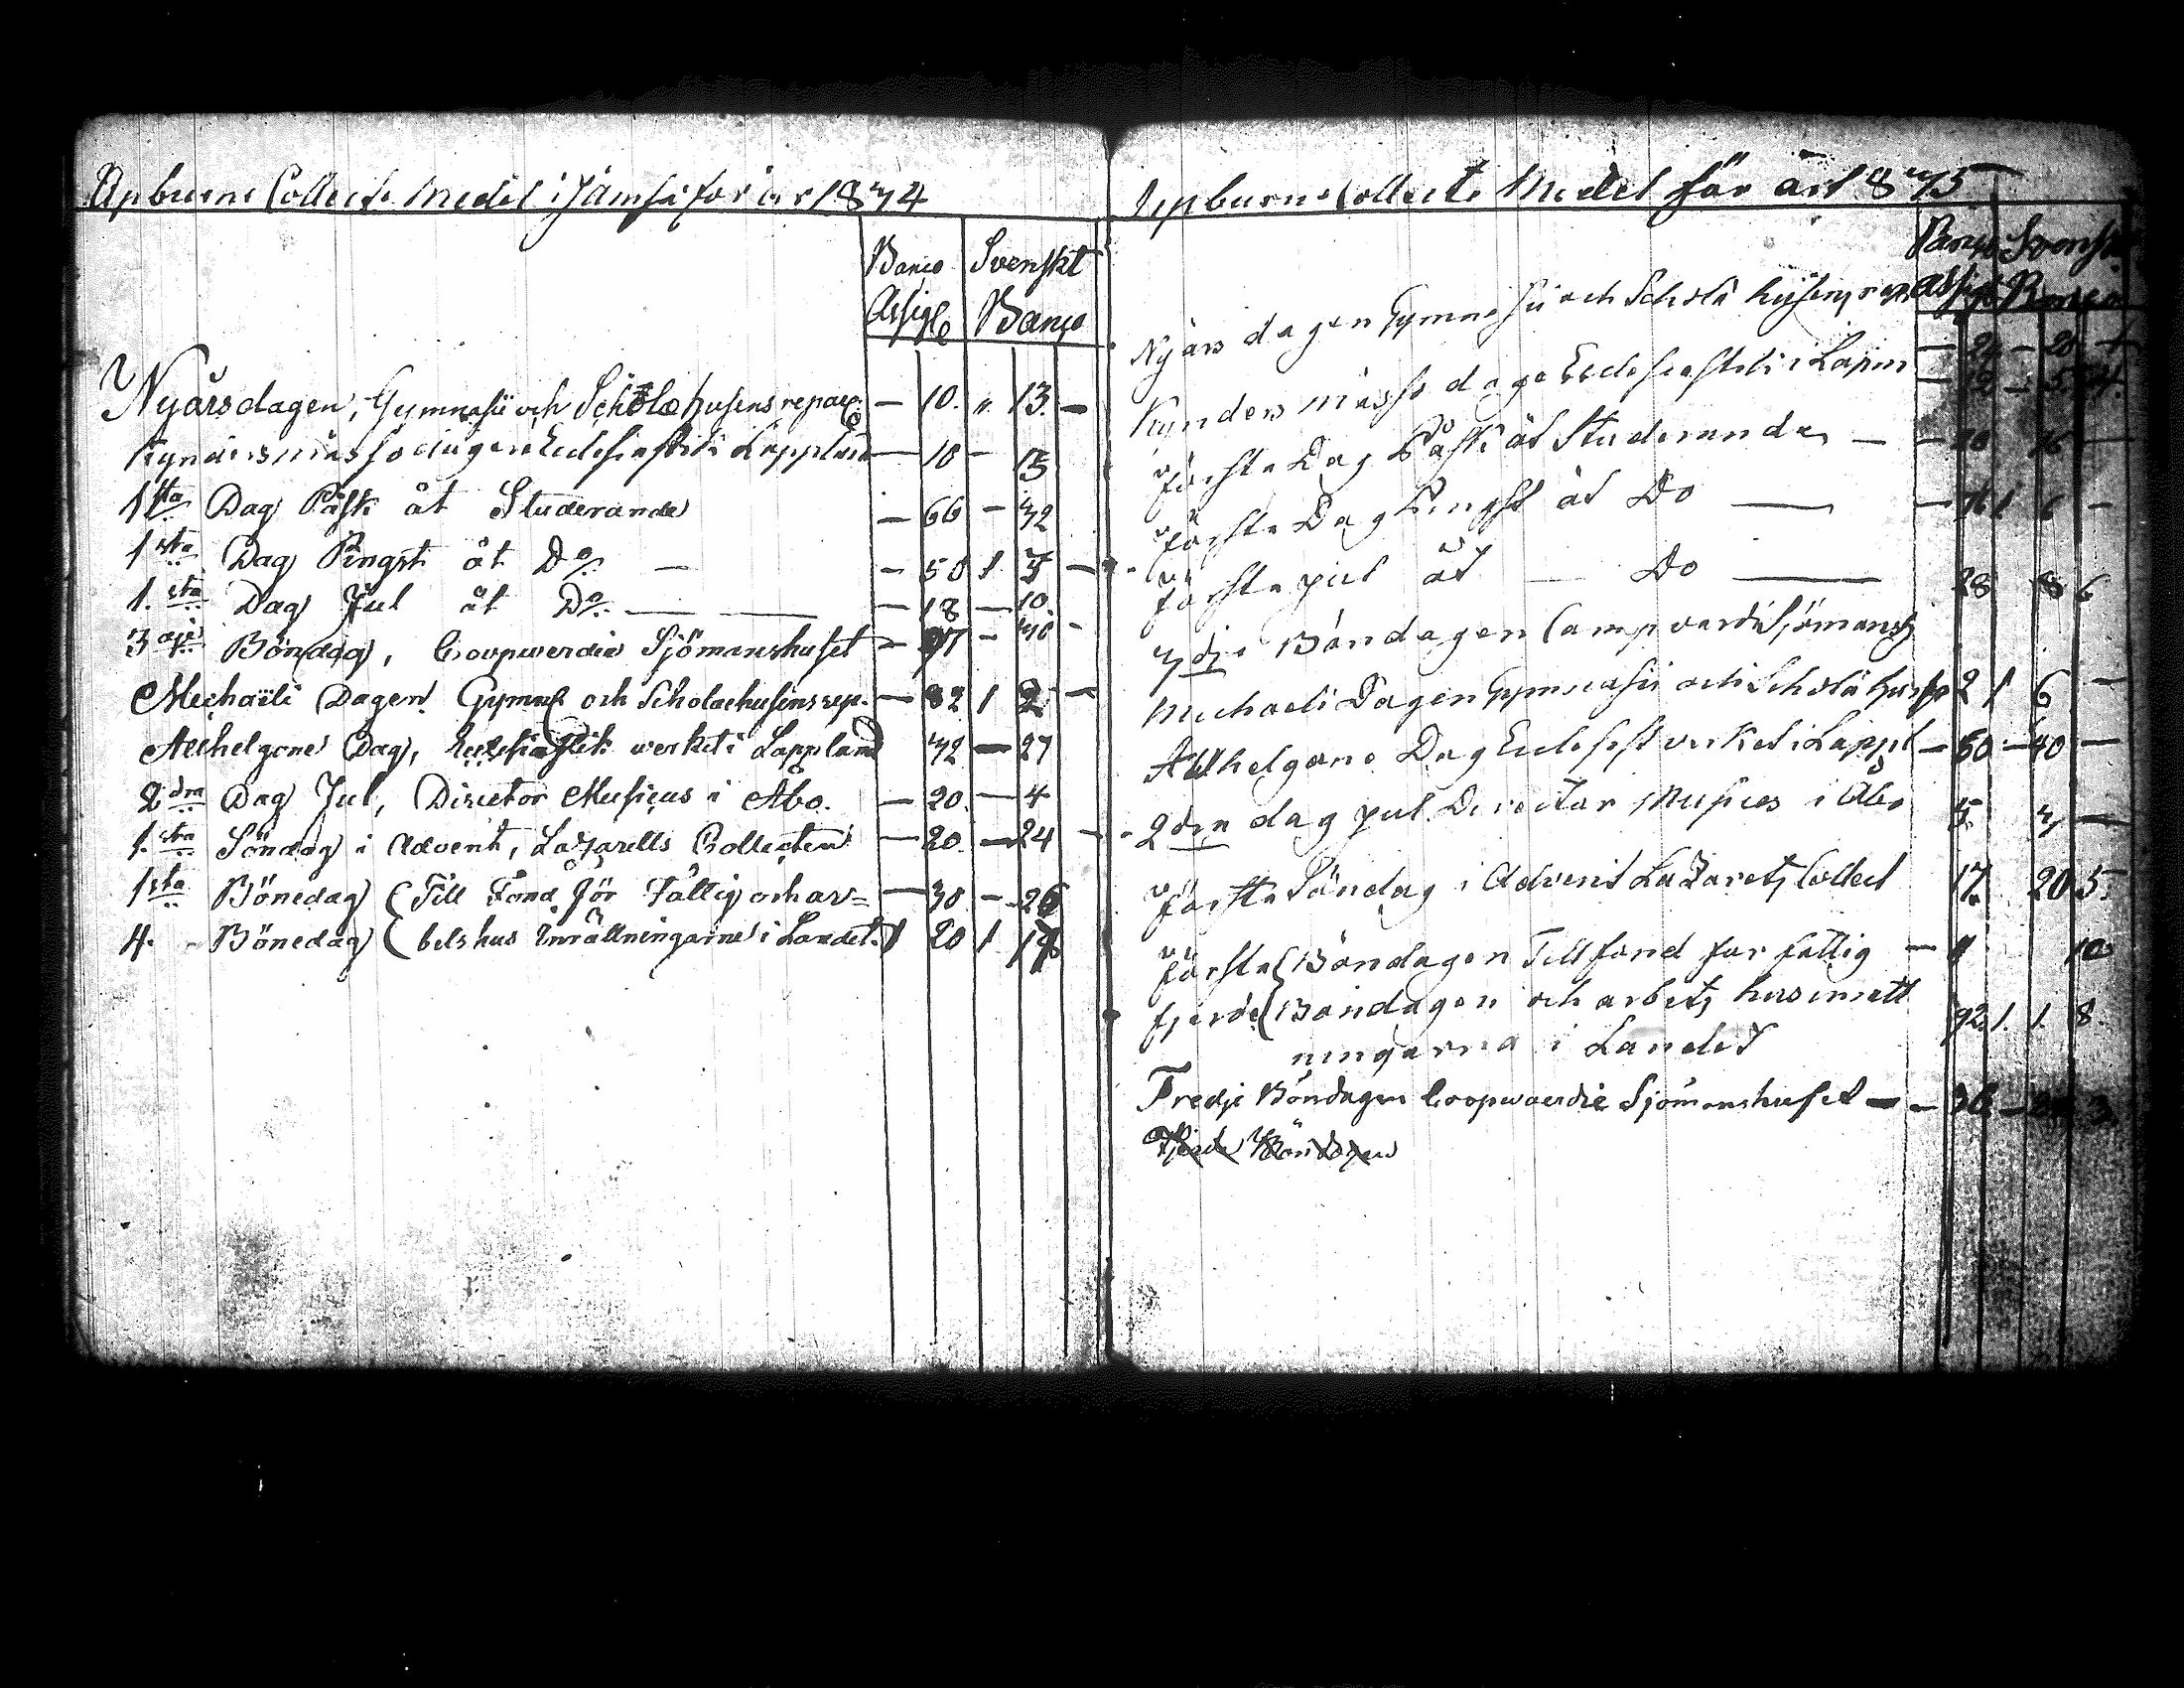 Upburne Collecte Medel i Jämsä för år 1834
Banco Svenskt
Assign Banco
Nyårsdagen, Gymnasii och Scholæhusens reparat. — 10. „ 13. —
Kyndersmässodagen Ecclesiastik: Lappland — 10 — 15
1sta Dag Påsk åt Studerande — 66 — 32
1sta Dag Pingst åt Do — — 50 1 5 —
1.sta Dag Jul åt Do — — — 18 — 10.
3dje Böndag, Coopwerdie Sjömanshuset — 97 — 30 -
Michaëli Dagen Gymnas och Scholæhusens rep. — 82 1 2 —
Allhelgone Dag, Ecclesiastik werket i Lappland 32 — 27
2dra Dag Jul, Director Musicus i Åbo. — 20. — 4
1.sta Söndag i Advent, Lazaretts Collecten — 20. — 24 —
1sta Bönedag (Till Fond för Fattig och ar= — 30 — 26
4. - Bönedag (betshus Inrättningarne i Landet. 1 20 1 17
Upburne Collecte Medel för år 1835
Banco Svenskt
Assig Banco
Nyårs dagen Gymnasii och Scholæ husens rep — 24 — 20 +
Kynders mässo dage Ecclesiastik i Lapm
Första Dag Påsk åt Studerande — — 16
Första Dag Pingst åt Do — — 16 1 6 —
Första jul åt — Do — 28 8 6
3dje Böndagen Coopvardi Sjömansh
Michaeli Dagen Gymnasii och Scholæ husse 2 1 6 —
Allhelgone Dag Ecclesiast verket i Lappl — 50 — 40 —
2dra dag jul Director Musicus i Åbo 5. 3 —
Första Söndag i Advent Lazarets Collect 17. 20 5.
Första (Böndagen Till fond for fattig — 10
fjerde (Böndagen och arbets hus inrätt 92. 1. 1. 8.
ningarna i Landet
Tredje Böndagen Coopwaerdie Sjömanshuset — — 36 —
Fjerde Böndagen